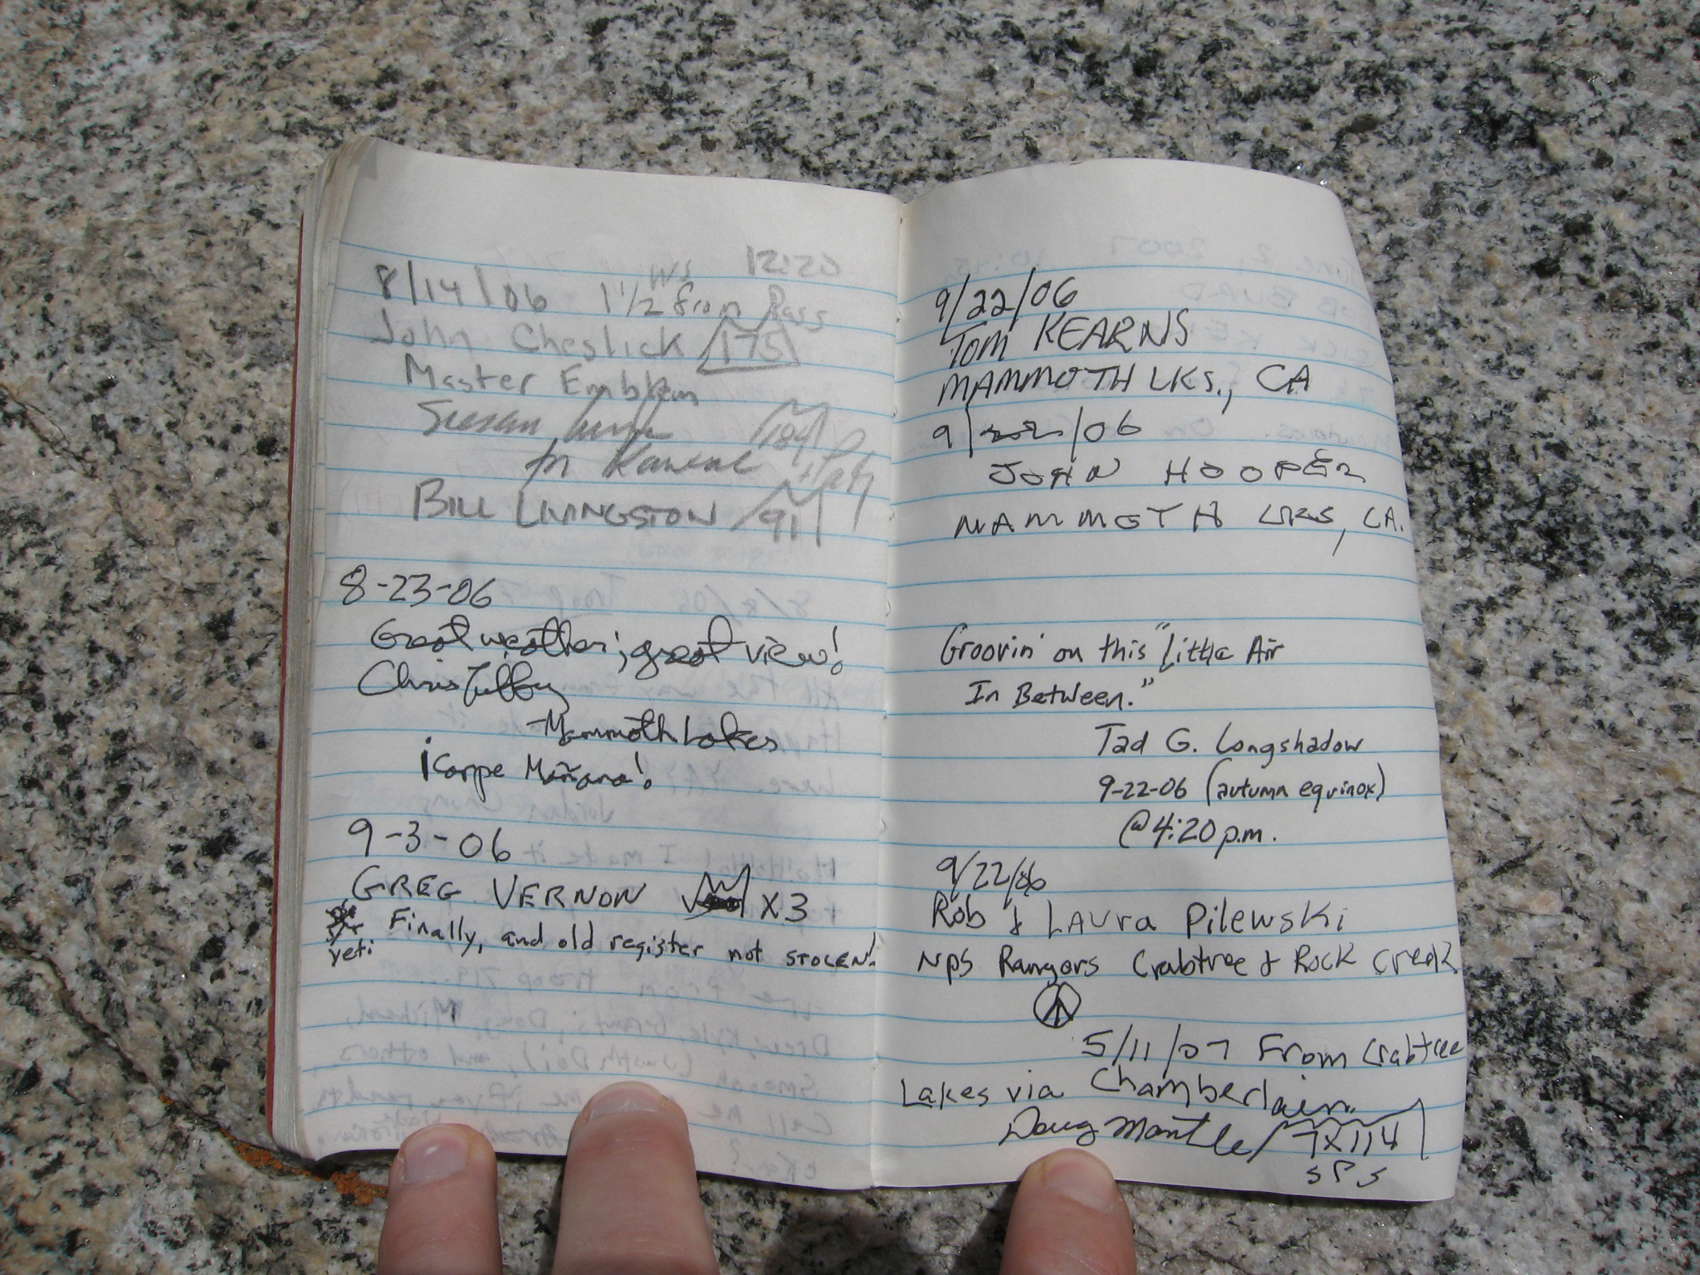 12:20
8/14/06 1 1/2 hrs from Pass
John Cheslick 175
Master Emblem
Susan
BILL LIVINGSTON 91
8-23-06
Great weather; great view!
Chris
-Mammoth Lakes
¡Carpe Mañana!
9-3-06
GREG VERNON X3
Finally, and old register not STOLEN!
yet!
9/22/06
TOM KEARNS
MAMMOTH LKS., CA
9/22/06
JOHN HOOPER
MAMMOTH LKS, CA.
Groovin' on this "Little Air
In Between."
Tad G. Longshadow
9-22-06 (autumn equinox)
@ 4:20 p.m.
9/22/06
Rob & LAURA Pilewski
NPS Rangers Crabtree & Rock Creek
5/11/07 From Crabtree
Lakes via Chamberlain.
Doug Mantle 7X114
SPS